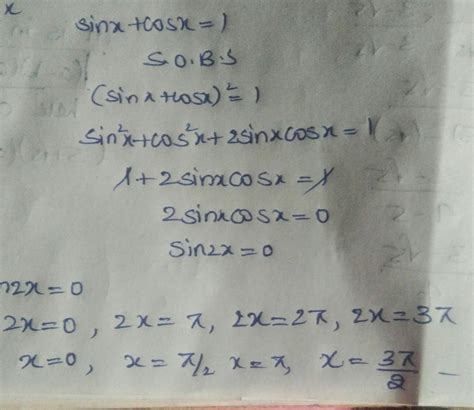 x
sinx+cosx=1
S.O.B.S
(sinx+cosx)²=1
sin²x+cos²x+2sinxcosx=1
1+2sinxcosx=1
2sinxcosx=0
sin2x=0
n2x=0
2x=0, 2x=π, 2x=2π, 2x=3π
x=0, x=π/2 x=π, x=3π/2